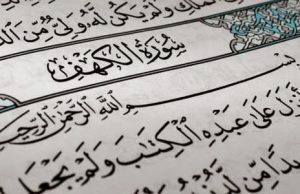 وَلَمْ يَكُن لَّهُ وَلِيٌّ مِّنَ
سُورَةُ الكَهْفِ
بِسْمِ اللَّهِ الرَّحْمَنِ الرَّحِيمِ
نزَلَ عَلَى عَبْدِهِ الْكِتَابَ وَلَمْ يَجْعَل
دًا مِّن